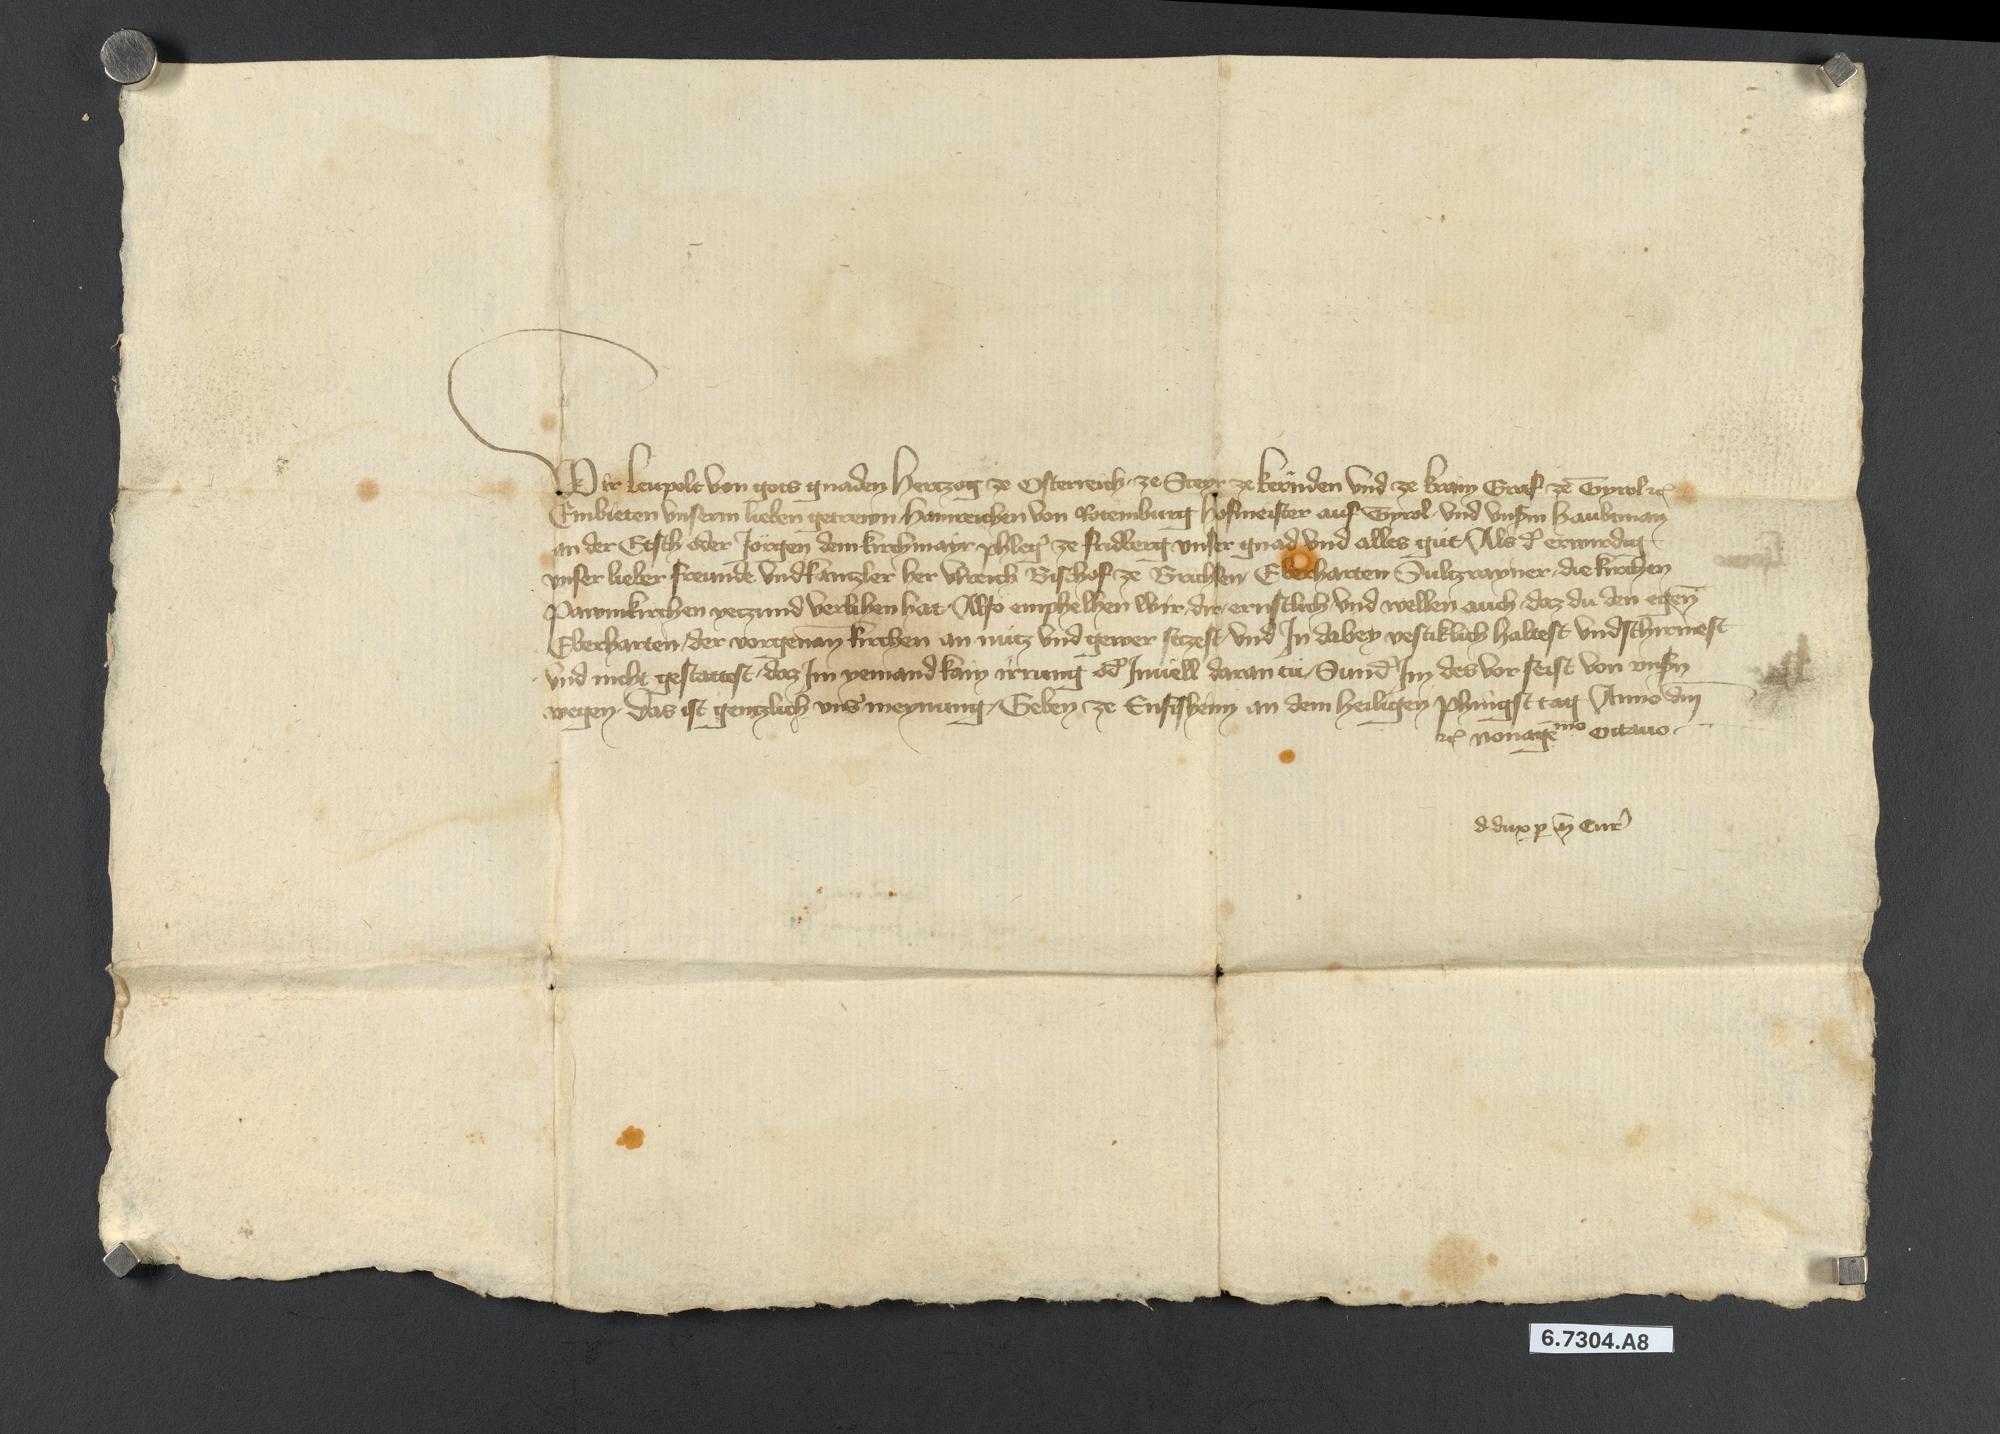 Wir Leupolt von gots gnaden Hertzog ze Osterreich ze Steyr ze kernden vnd ze krain Graf ze Tyrol etc
Embieten vnserm lieben getrewn Hainreichen von Rotemburg Hofmeister auf Tyrol vnd vnserm haubtman
an der Etsch oder Jörgen dem kirchmayr phleg ze fridberg vnser gnad vnd alles gut Als d erwirdig
vnser lieber freunde vnd kantzler her Vlreich Bischof ze Brichsen Eberharten Sultzrayner die kirchen
Pawmkirchen yetzund verlihen hat Also emphelhen wir dir ernstlich vnd wellen auch daz du den egen
Eberharten der vorgenan kirchen an nutz vnd gewer setzest vnd In dabey vestiklich haltest vnd schirmest
vnd nicht gestattest daz Im yemand kain irrung od Inuell daran tü Sund Im des vor seist von vnsn
wegen Das ist gentzlich vns meynung Geben ze Ensisheim an dem heiligen phingst tag Anno dni
etc nonage mo octauo
d dux p m Cur
6.7304.A8